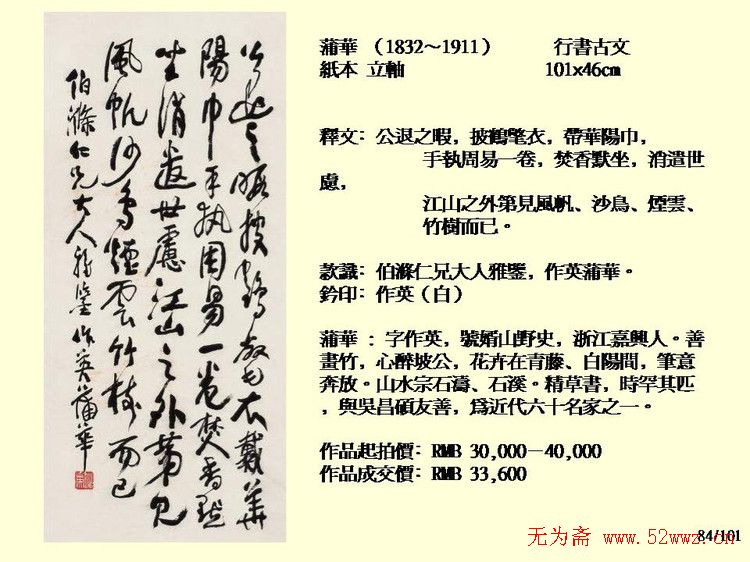 公退之暇披鶴氅衣戴華
陽巾手執周易一卷焚香默
坐消遣世慮江山之外第見
風帆沙鳥煙雲竹樹而已
伯滌仁兄大人雅鑒 作英蒲華
蒲華 （1832～1911） 行書古文
紙本 立軸 101x46cm
釋文: 公退之暇，披鶴氅衣，帶華陽巾，
手執周易一卷，焚香默坐，消遣世
慮，
江山之外第見風帆、沙鳥、煙雲、
竹樹而已。
款識: 伯滌仁兄大人雅鑒，作英蒲華。
鈐印: 作英（白）
蒲華 : 字作英，號婿山野史，浙江嘉興人。善
畫竹，心醉坡公，花卉在青藤、白陽間，筆意
奔放。山水宗石濤、石溪。精草書，時罕其匹
，與吳昌碩友善，爲近代六十名家之一。
作品起拍價: RMB 30,000－40,000
作品成交價: RMB 33,600
84/101
无为斋 www.52wwz.cn